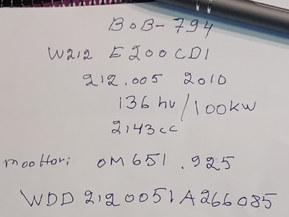 BOB-794
W212 E200CDI
212.005 2010
136 hv/100kW
2143cc
moottori OM651.925
WDD2120051A266085